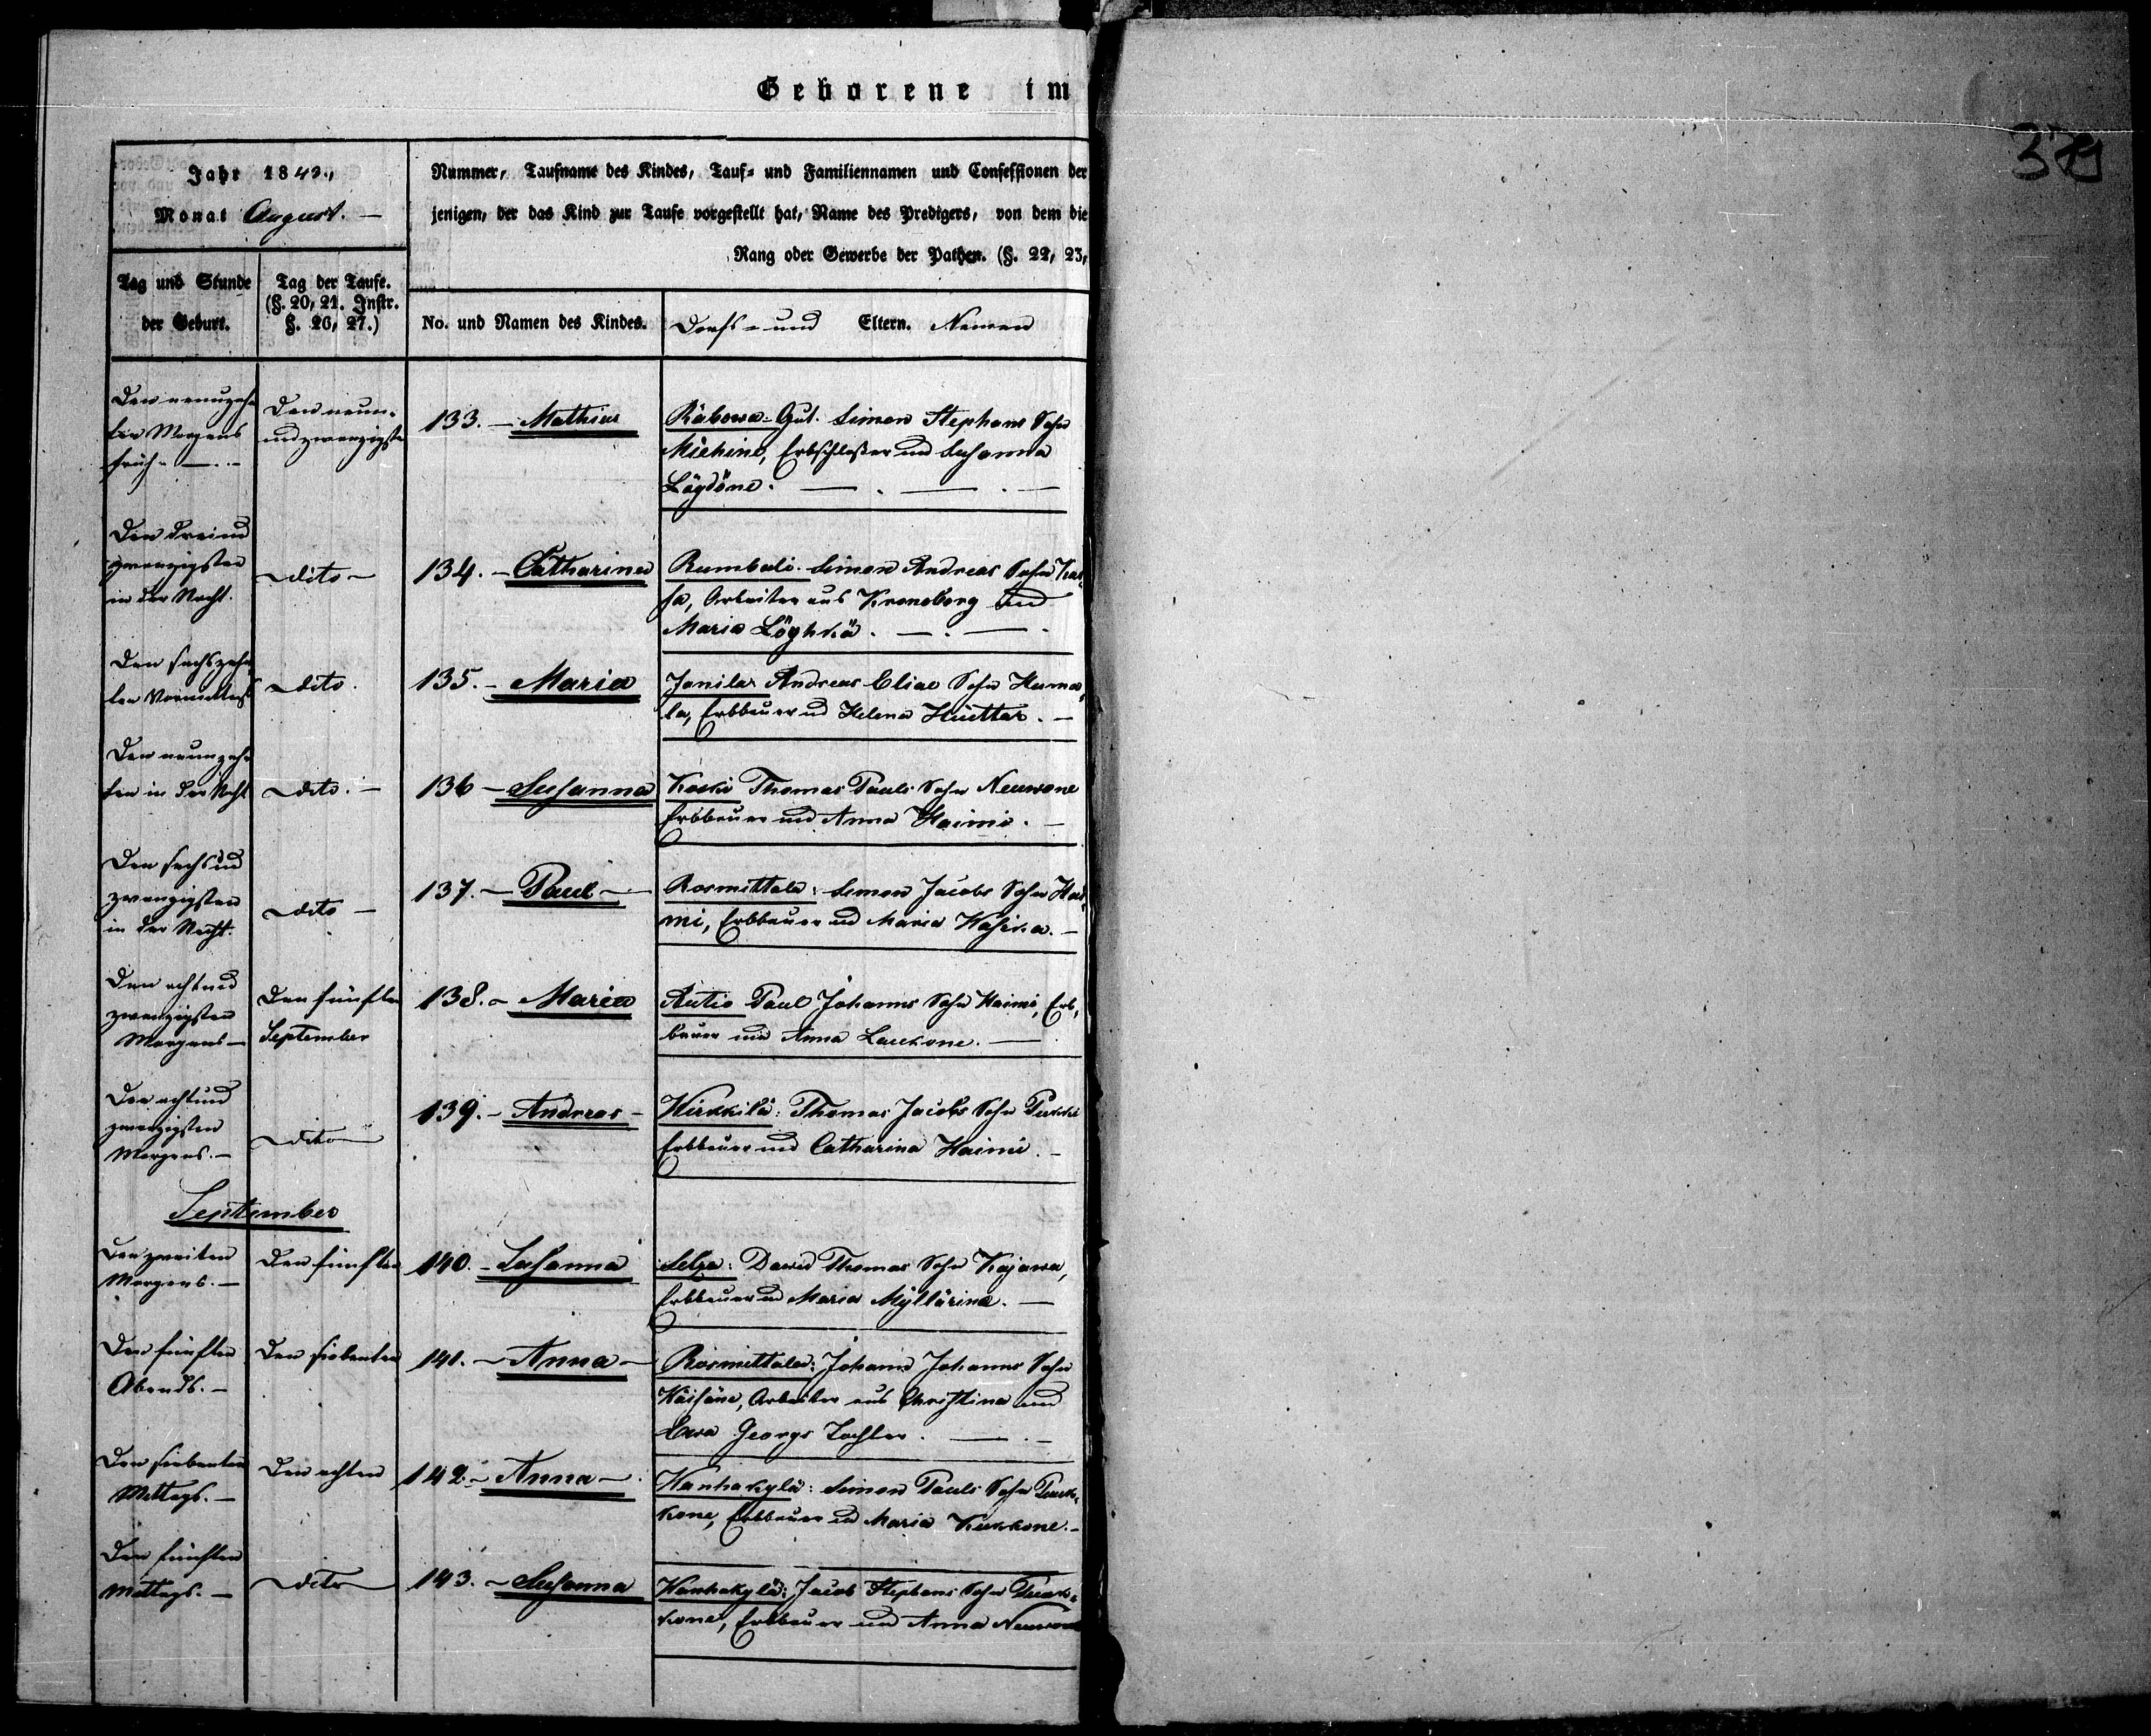 Geborene im
379
Jahr 1843.,
Monat August. —
Nummer, Taufname des Kindes, Tauf- und Familiennamen und Confessionen der
jenigen, der das Kind zur Taufe vorgestellt hat, Name des Predigers, von dem die
Rang oder Gewerbe der Pathen. (§. 22, 23,
Tag und Stunde
der Geburt.
Tag der Taufe.
(§. 20, 21. Instr.
§. 26, 27.)
No. und Namen des Kindes.
Dorfs- und Eltern. Namen
Den neunzehn
ten Morgens
früh
Den neun-
undzwanzigsten
133. — Mathias
Räbowa-Gut. Simon Stephans Sohn
Miehine, und Susanna
Den dreiund
zwanzigsten
in der Nacht.
dito —
134. — Catharina
Rumbali. Simon Andreas Sohn
Arbeiter aus Kroneborg und
Maria
Den sechszehn
ten Vormittags
dito.
135. — Maria
Janila Andreas Eliae Sohn Huma-
la, Erbbauer und Helena
Den neunzehn
ten in der Nacht
dito. —
136 — Susanna
Koski Thomas Pauls Sohn Neuwone
Erbbauer und Anna Haimi. —
Den sechsund
zwanzigsten
in der Nacht.
dito —
137. — Paul —
Rosmittala: Simon Jacobs Sohn Hai-
mi, Erbbauer und Maria
Den achtund
zwanzigsten
Morgens —
Den fünften
September
138. — Maria
Autio Paul Johanns Sohn Haimi, Erb-
bauer und Anna Laukone. —
Den achtund
zwanzigsten
Morgens. —
dito
139. — Andreas —
Kirkkilä: Thomas Jacobs Sohn Pukki
Erbbauer und Catharina Haimi. —
September
Den zweiten
Morgens. —
Den fünften
140. — Susanna
Selza: David Thomas Sohn Kajawa,
Erbbauer und Maria Myllärine. —
Den fünften
Abends. —
Den siebenten
141. — Anna —
Rosmittala: Johann Johanns Sohn
Arbeiter aus Christina und
Ewa Georgs Tochter. —
Den siebenten
Mittags. —
Den achten
142. — Anna —
Wanhakylä: Simon Pauls Sohn
kone, Erbbauer und Maria Kukkone. —
Den fünften
Mittags. —
dito
143. — Susanna
Wanhakylä: Jacob Stephans Sohn
kone, Erbbauer und Anna Neuwone